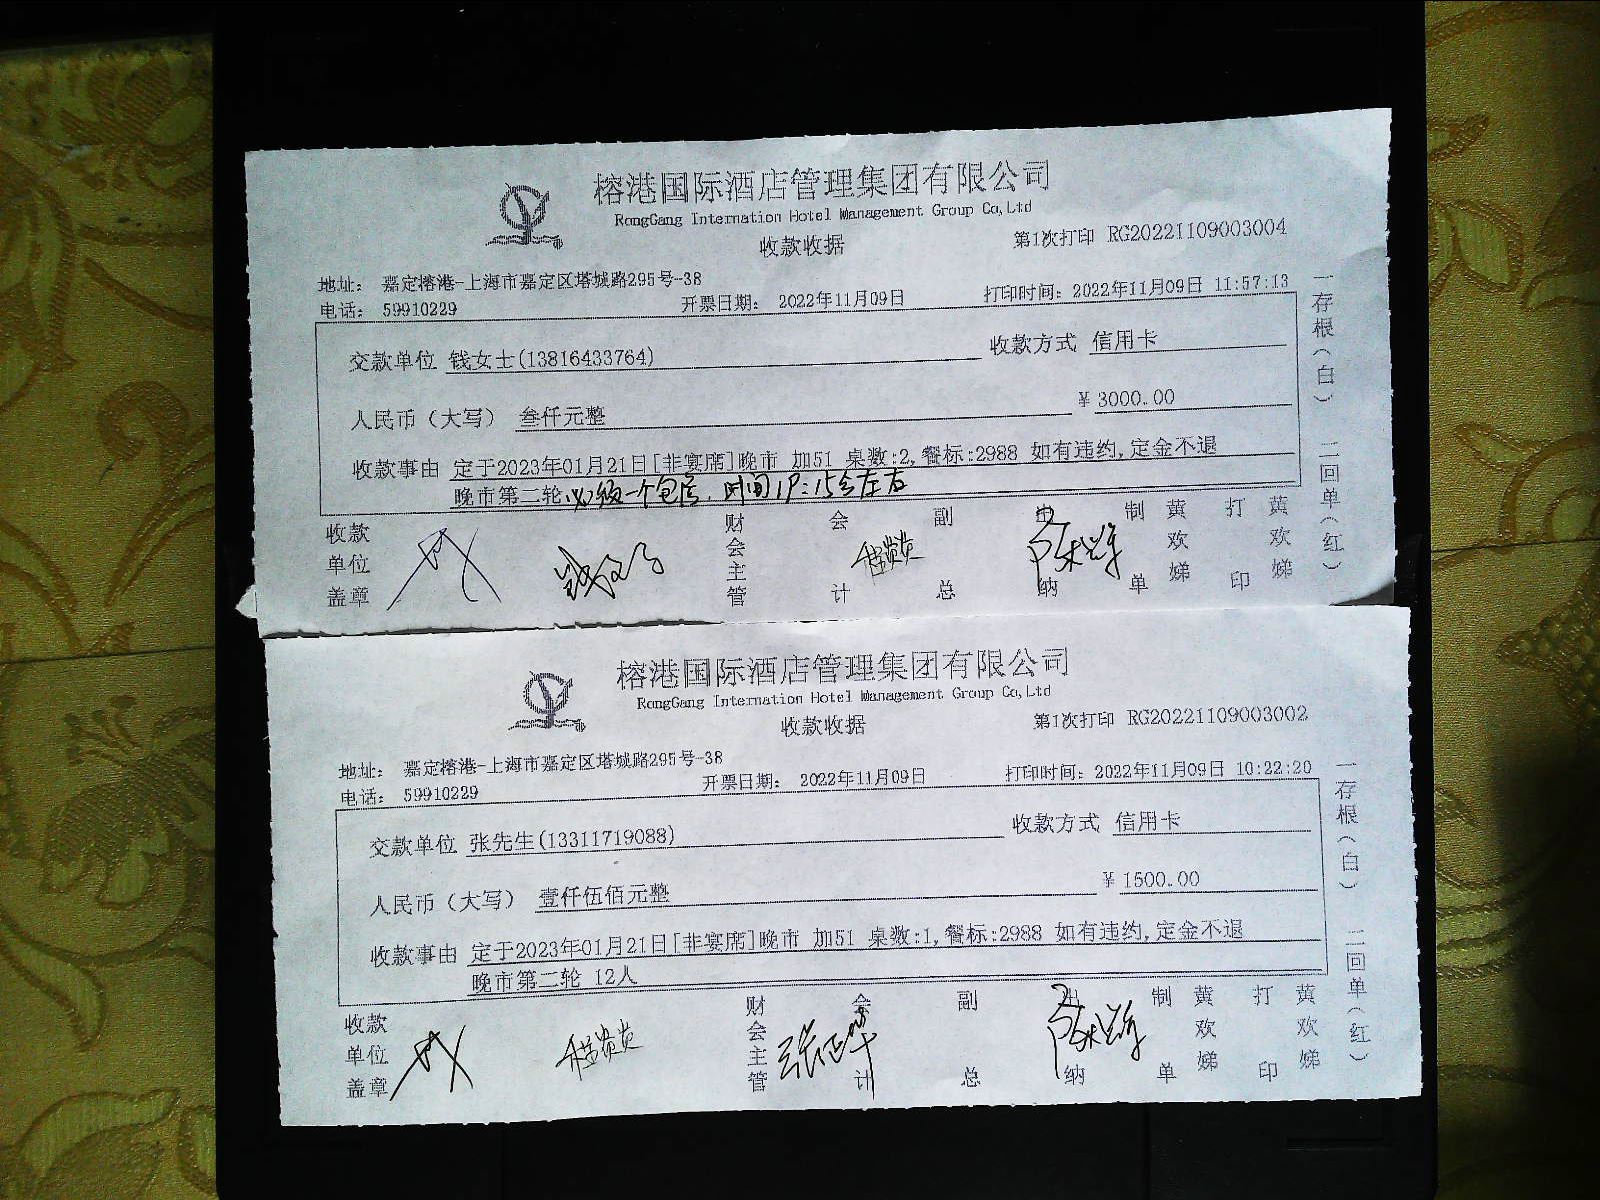 榕港国际酒店管理集团有限公司
RongGang Internation Hotel Management Group Co,Ltd
收款收据
第1次打印 RG20221109003004
地址： 嘉定榕港-上海市嘉定区塔城路295号-38
电话： 59910229 开票日期： 2022年11月09日 打印时间：2022年11月09日 11:57:13
交款单位 钱女士(13816433764) 收款方式 信用卡
人民币（大写） 叁仟元整 ¥ 3000.00
收款事由 定于2023年01月21日[非宴席]晚市 加51 桌数:2,餐标:2988 如有违约,定金不退
晚市第二轮 必须一个包房，时间 :15分左右
收款单位盖章 财会主管 会计 副总 出纳 制单 黄欢娣 打印 黄欢娣
一存根（白） 二回单（红）
榕港国际酒店管理集团有限公司
RongGang Internation Hotel Management Group Co,Ltd
收款收据
第1次打印 RG20221109003002
地址： 嘉定榕港-上海市嘉定区塔城路295号-38
电话： 59910229 开票日期： 2022年11月09日 打印时间：2022年11月09日 10:22:20
交款单位 张先生(13311719088) 收款方式 信用卡
人民币（大写） 壹仟伍佰元整 ¥ 1500.00
收款事由 定于2023年01月21日[非宴席]晚市 加51 桌数:1,餐标:2988 如有违约,定金不退
晚市第二轮 12人
收款单位盖章 财会主管 会计 副总 出纳 制单 黄欢娣 打印 黄欢娣
一存根（白） 二回单（红）